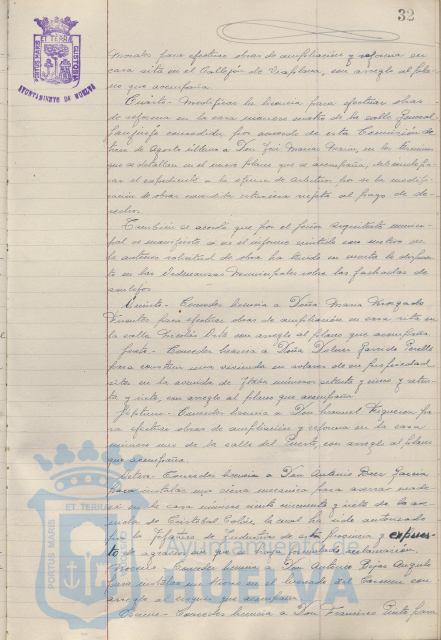 32
PORTUS MARIS ET TERRAE CUSTODIA
AYUNTAMIENTO DE HUELVA
Morales para efectuar obras de ampliación y reforma en
casa sita en el Callejón de, con arreglo al pla-
no que acompaña.
Cuarto.- Modificar la licencia para efectuar obras
de reforma en la casa número cuatro de la calle General
Sanjurjo concedida por acuerdo de esta Comisión de
trece de Agosto último a Don José Marín, en los términos
que se detallan en el nuevo plano que se acompaña,
el expediente a la oficina de Arbitrios por si la modifi-
cación de obras concedida estuviera sujeta al pago de de-
rechos.
También se acordó que por el Señor Arquitecto munici-
pal se manifieste si en el informe emitido con motivo de
la anterior solicitud de obra ha tenido en cuenta lo dispues-
to en las Ordenanzas Municipales sobre las fachadas de
Quinto.- Conceder licencia a Doña María Morgado
para efectuar obras de ampliación en casa sita en
la calle Nicolás con arreglo al plano que acompaña.
Sexto.- Conceder licencia a Doña Dolores Garrido
para construir una vivienda en solares de su propiedad
sitos en la avenida de números setenta y cinco y seten-
ta y siete, con arreglo al plano que acompaña.
Séptimo.- Conceder licencia a Don Manuel Figueroa pa-
ra efectuar obras de ampliación y reforma en la casa
número uno de la calle del Puerto, con arreglo al plano
que acompaña.
Octavo.- Conceder licencia a Don Antonio García
para instalar una sierra mecánica para
en la casa número ciento cincuenta y siete de la
de Cristóbal Colón, la cual ha sido autorizada
por la Jefatura de Industria de esta provincia y expues-
to de agrado sin que se haya formulado reclamación.
Noveno.- Conceder licencia a Don Antonio Rojas Angulo
para instalar un Kiosco en el mercado del Carmen con
arreglo al croquis que acompaña.
Décimo.- Conceder licencia a Don Francisco Pinto para
PORTUS MARIS ET TERRAE CUSTODIA
Ayuntamiento de
HUELVA